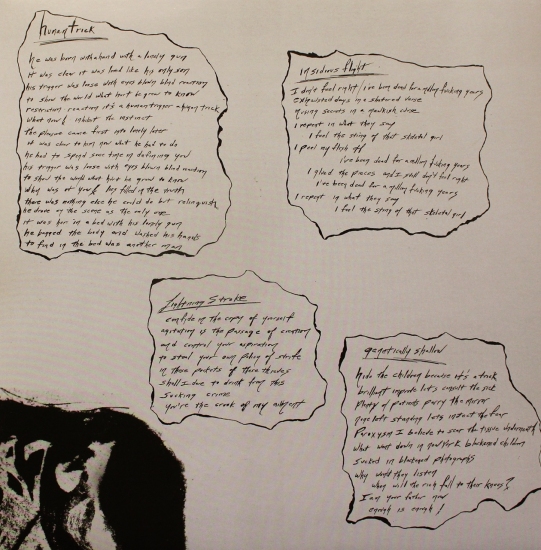 human trick
he was born with a hand with a lonely gun
it was clear it was load like his only son
his trigger was loose with eyes blown blod reaction
to show the world what hurt he grew to know
restriction reaction it's a human trigger a human trick
what now inhibit the instinct
the plan came first into lonely later
it was clear to him now what he had to do
he had to spend some time in defining you
his trigger was loose with eyes blown blod reaction
to show the world what hurt he grew to know
why was it your in the truth
there was nothing else he could do but relinquish
he drove on the scene as the only one
it was him in a bed with his lonely gun
he bagged the body and washed his hands
to find in the bed was another man
insidious flight
I don't feel right / i've been dead for a million fucking years
exhausted days in a state
secrets in a
I repeat in what they say
I feel the sting of that skeletal girl
I peel my flesh off
i've been dead for a million fucking years
I glued the pieces and I still don't feel right
i've been dead for a million fucking years
I repeat in what they say
I feel the sting of that skeletal girl
lightning stroke
confide in the copy of yourself
agitation is the passage of creation
and control your aspiration
to steal your own policy of strife
in three pockets of three thieves
shall I due to drink from this
sucking crime
you're the crook of my
genetically shallow
hide the children because it's a trick
brilliant impromte lets insult the sick
plenty of patients the mirror
lets standing lets the four
Paroxysm I believe to scar the tissue underneath
what went down in new york blackened children
sucked in blackened photographs
why would they listen
when will the rich fall to their knees?
I am your father now
enough is enough!